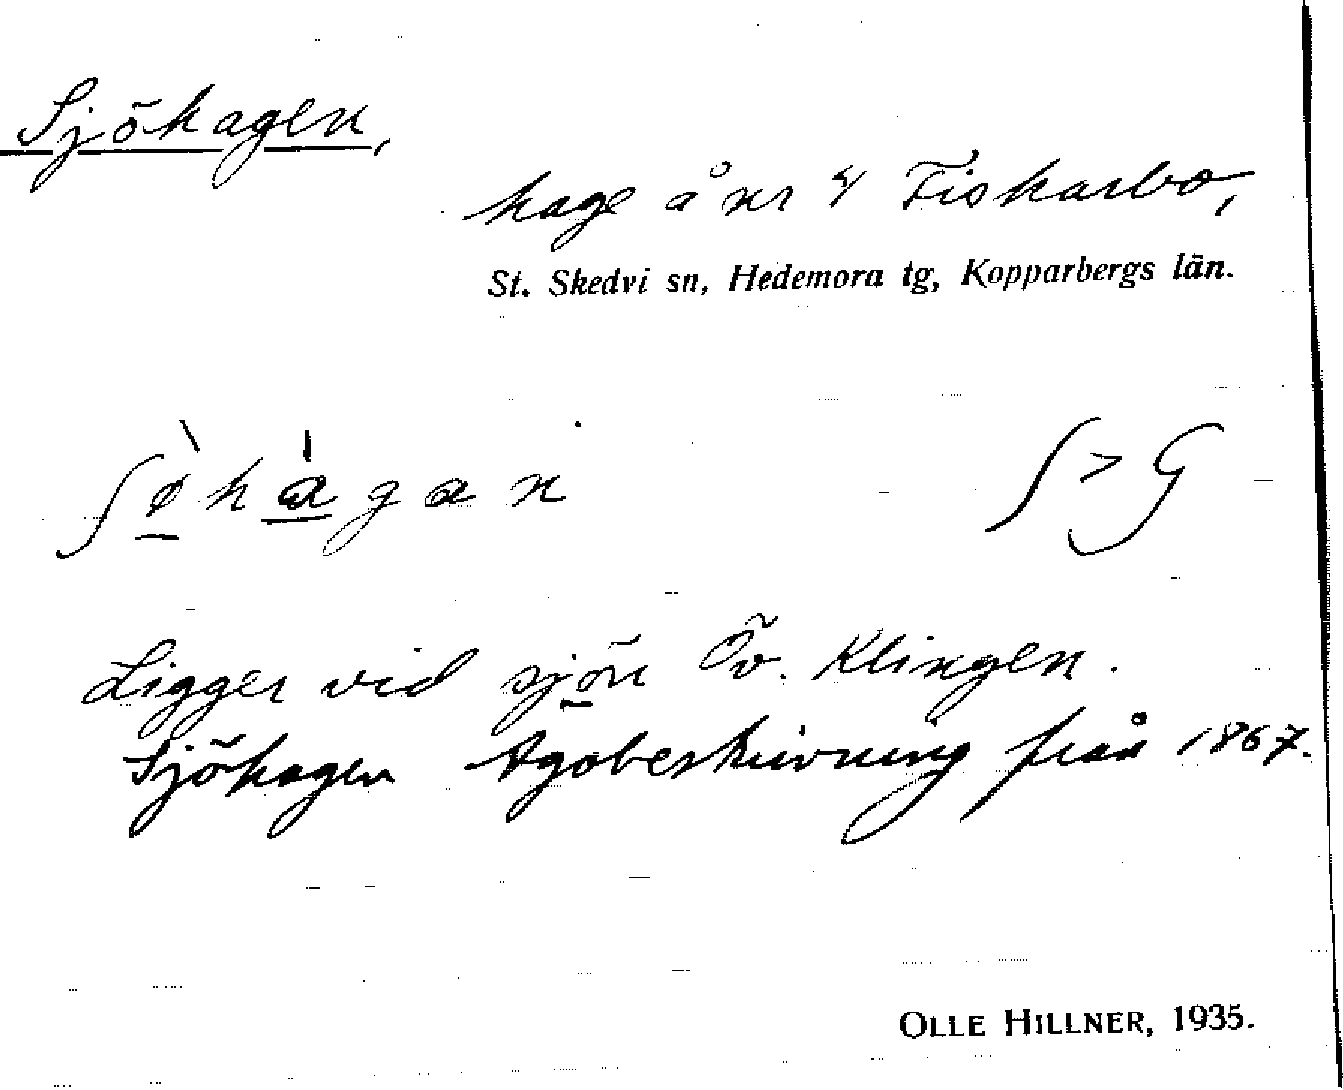 Sjöhagen,
hage å nr 4 Fiskarbo,
St. Skedvi sn, Hedemora tg, Kopparbergs län.
ʃø̀hàgan ʃ > G
Ligger vid sjön Öv. Klingen.
Sjöhagen Ägobeskrivning från 1867.
OLLE HILLNER, 1935.